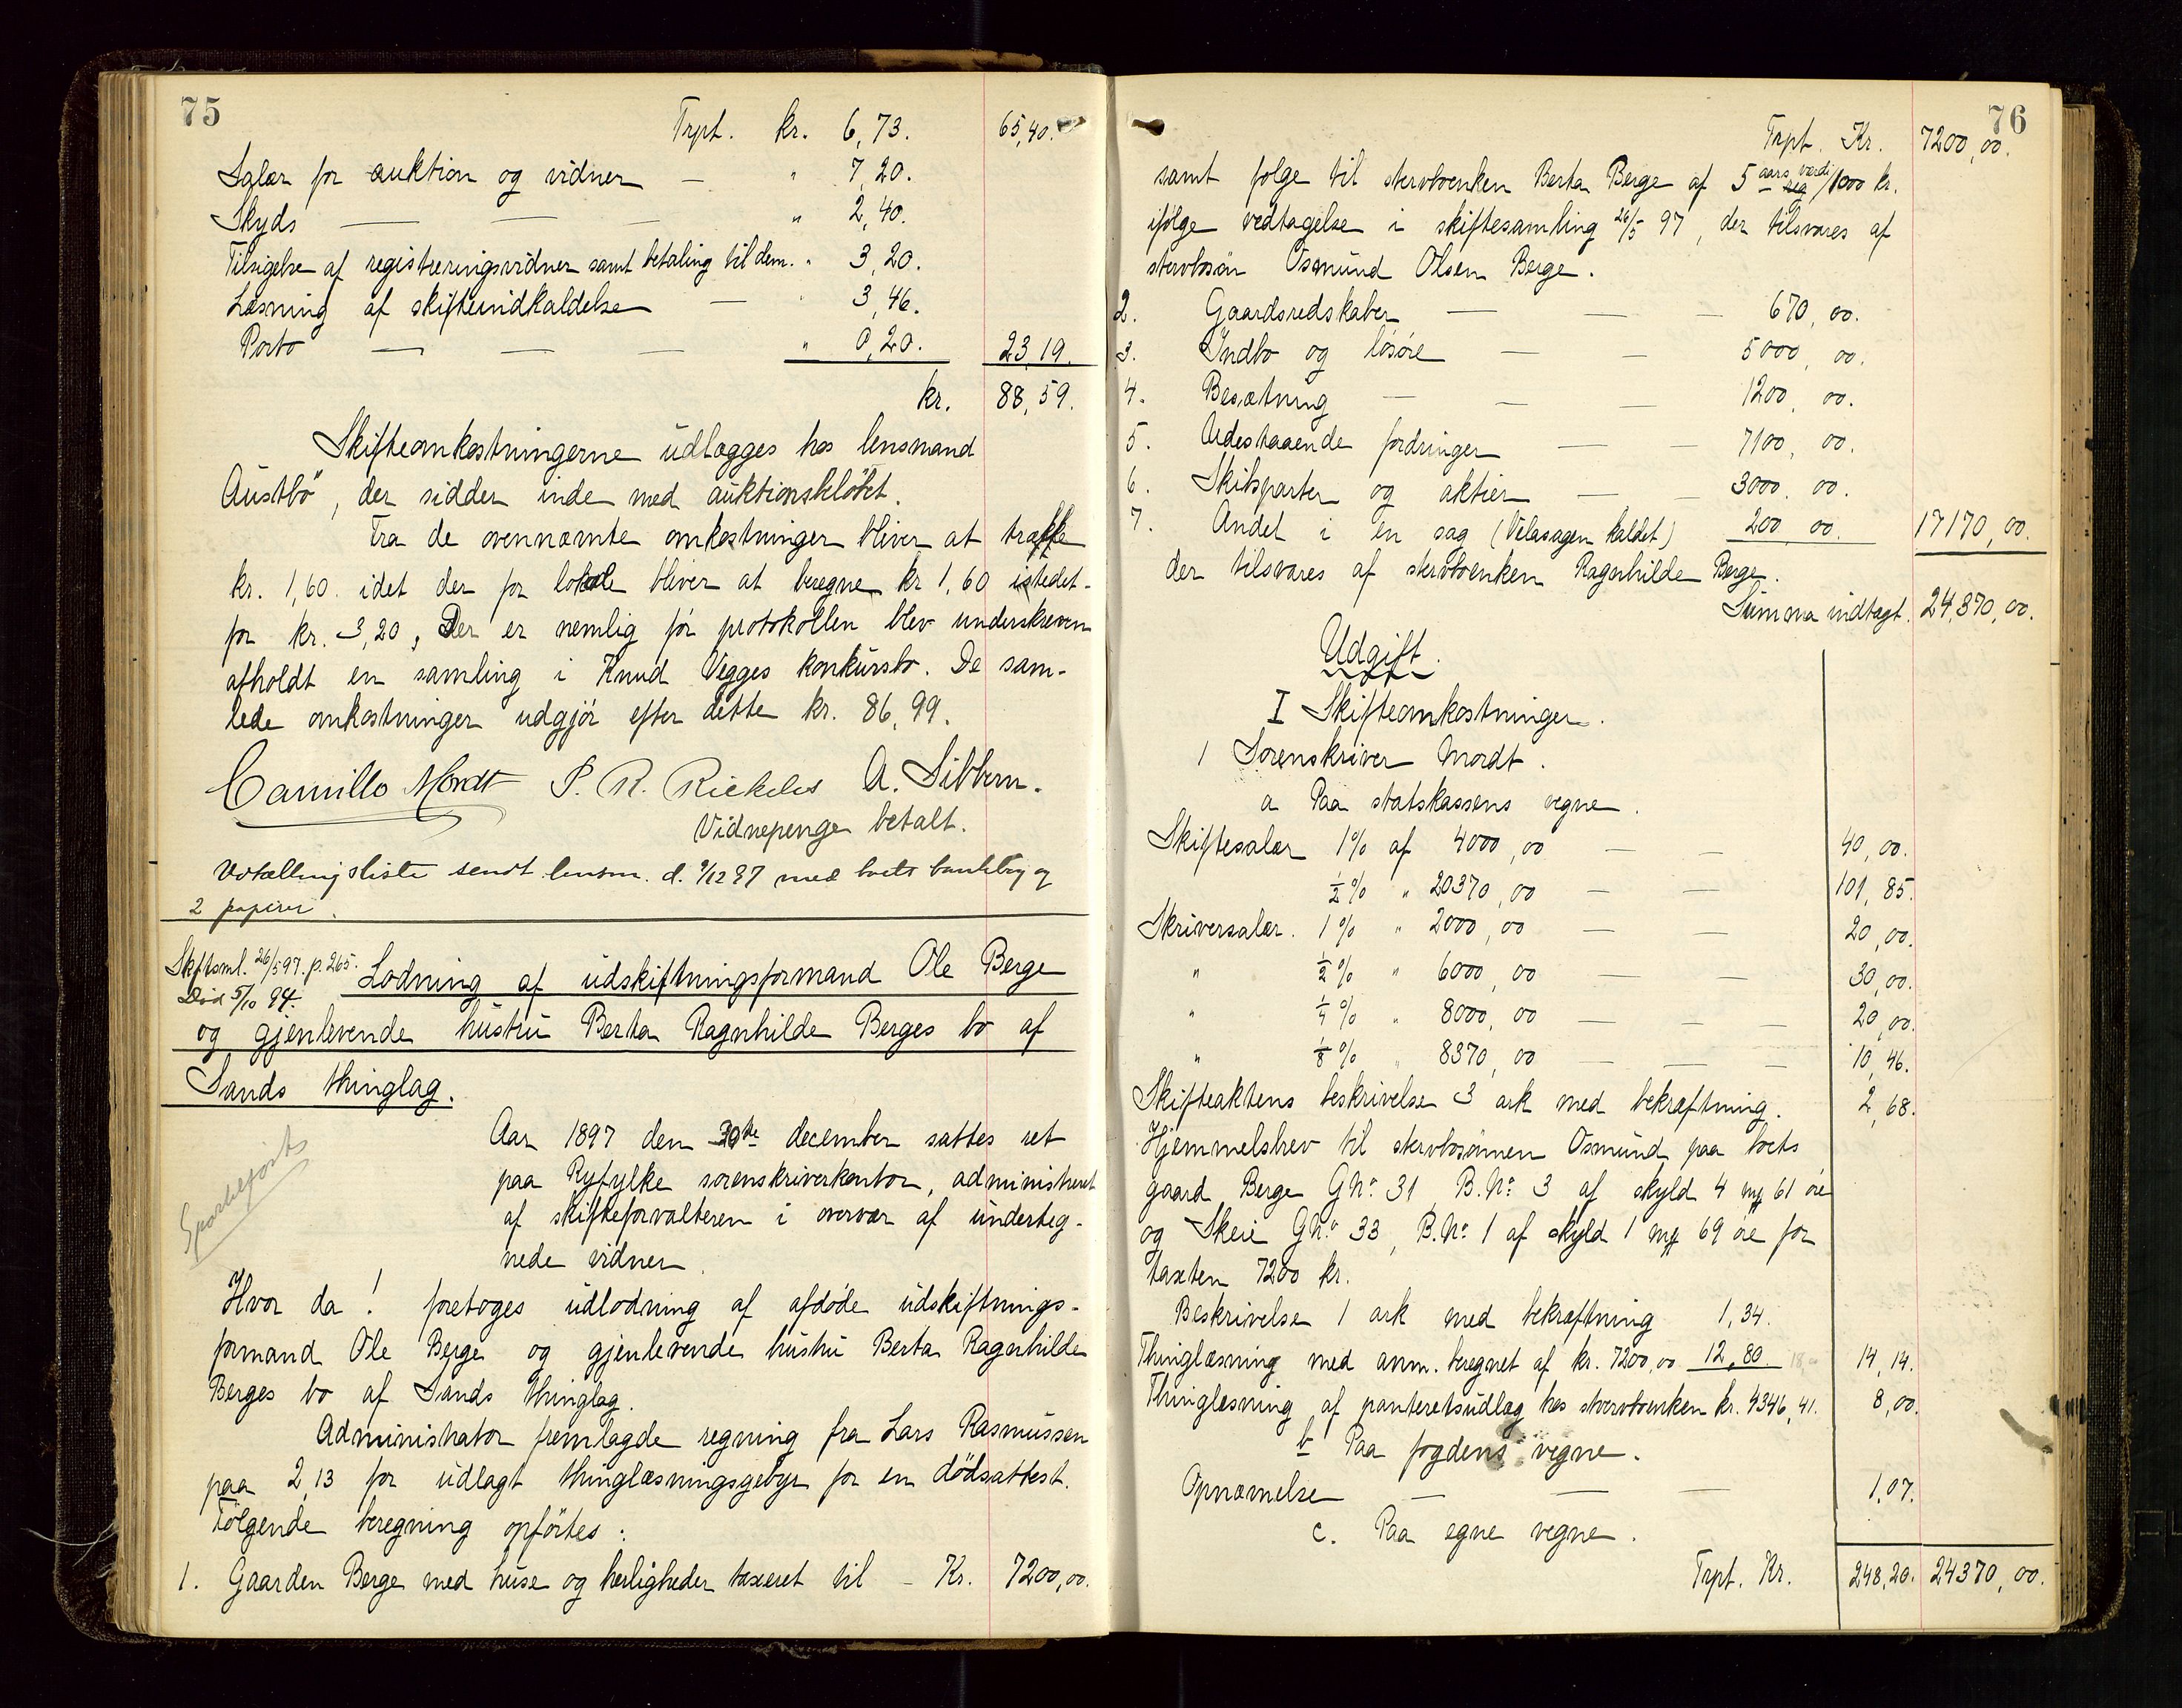 75
Trpt. kr. 6,73. 65,40.
Salær for auktion og vidner — " 7,20.
Skyds — — — " 2,40.
Tilsigelse af registreringsvidner samt betaling til dem. " 3,20.
Læsning af skifteindkaldelse — " 3,46.
Porto — — — " 0,20. 23,19.
kr. 88,59.
Skifteomkostningerne udlægges hos lensmand
Austbö, der sidder inde med auktionsbelöbet.
Fra de ovennævnte omkostninger bliver at trække
kr. 1,60 idet der for lokale bliver at beregne kr 1,60 istedet-
for kr. 3,20, Der er nemlig för protokollen blev underskreven
afholdt en samling i Knud Vegges konkursbo. De sam-
lede omkostninger udgjör efter dette kr. 86,99.
Camillo Mordt P. R. Rickeles A. Sibbern.
Vidnepenge betalt.
Udtællingsliste sendt lensm. d. 9/12 97 med boets bankbog og
2 papirer.
Skftsml. 26/5 97. p. 265.
Död 5/10 94.
Lodning af udskiftningsformand Ole Berge
og gjenlevende hustru Berta Ragnhilde Berges bo af
Sands thinglag.
Aar 1897 den 30te december sattes ret
paa Ryfylke sorenskriverkontor, administreret
af skifteforvalteren i overvær af underteg-
nede vidner.
Hvor da! foretoges udlodning af afdöde udskiftnings-
formand Ole Berge og gjenlevende hustru Berta Ragnhilde
Berges bo af Sands thinglag.
Administrator fremlagde regning fra Lars Rasmussen
paa 2,13 for udlagt thinglæsningsgebyr for en dödsattest.
Fölgende beregning opförtes:
1. Gaarden Berge med huse og herligheder taxeret til — Kr. 7200,00.
76
Trpt. Kr. 7200,00.
samt folge til stervboenken Berta Berge af 5 aars værdi / 1000 kr.
ifölge vedtagelse i skiftesamling 26/5 97, der tilsvares af
stervbosön Osmund Olsen Berge.
2. Gaardsredskaber — — — 670,00.
3. Indbo og lösöre — — 5000,00.
4. Besætning — — — 1200,00.
5. Udestaaende fordringer — — 7100,00.
6. Skibsparter og aktier — — 3000.00.
7. Andel i en sag (Velasagen kaldet) 200,00. 17170,00.
der tilsvares af stervboenken Ragnhilde Berge.
Summa indtægt. 24,370,00.
Udgift.
I Skifteomkostninger.
1 Sorenskriver Mordt.
a Paa statskassens vegne.
Skiftesalær 1% af 4000,00 — — 40,00.
½% " 20370,00 — — 101,85.
Skriversalær. 1% " 2000,00 — — 20,00.
" ½% " 6000,00 — — 30,00.
" ¼% " 8000,00 — — — 20,00.
" ⅛% " 8370,00 — — — 10,46.
Skifteaktens beskrivelse 3 ark med bekræftning. 2,68.
Hjemmelsbrev til stervbosönnen Osmund paa boets
gaard Berge GNo. 31, B.No. 3 af skyld 4 mk 61 öre
og Skeie GNo. 33, B.No. 1 af skyld 1 mk 69 öre for
taxten 7200 kr.
Beskrivelse 1 ark med bekræftning 1,34.
Thinglæsning med anm. beregnet af kr. 7200,00. 12,80. 14,14.
Thinglæsning af panteretsudlæg hos stervboenken kr. 4346,41. 8,00.
b Paa fogdens vegne.
Opnævnelse — — — 1,07.
c. Paa egne vegne.
Trpt. Kr. 248,20. 24370,00.